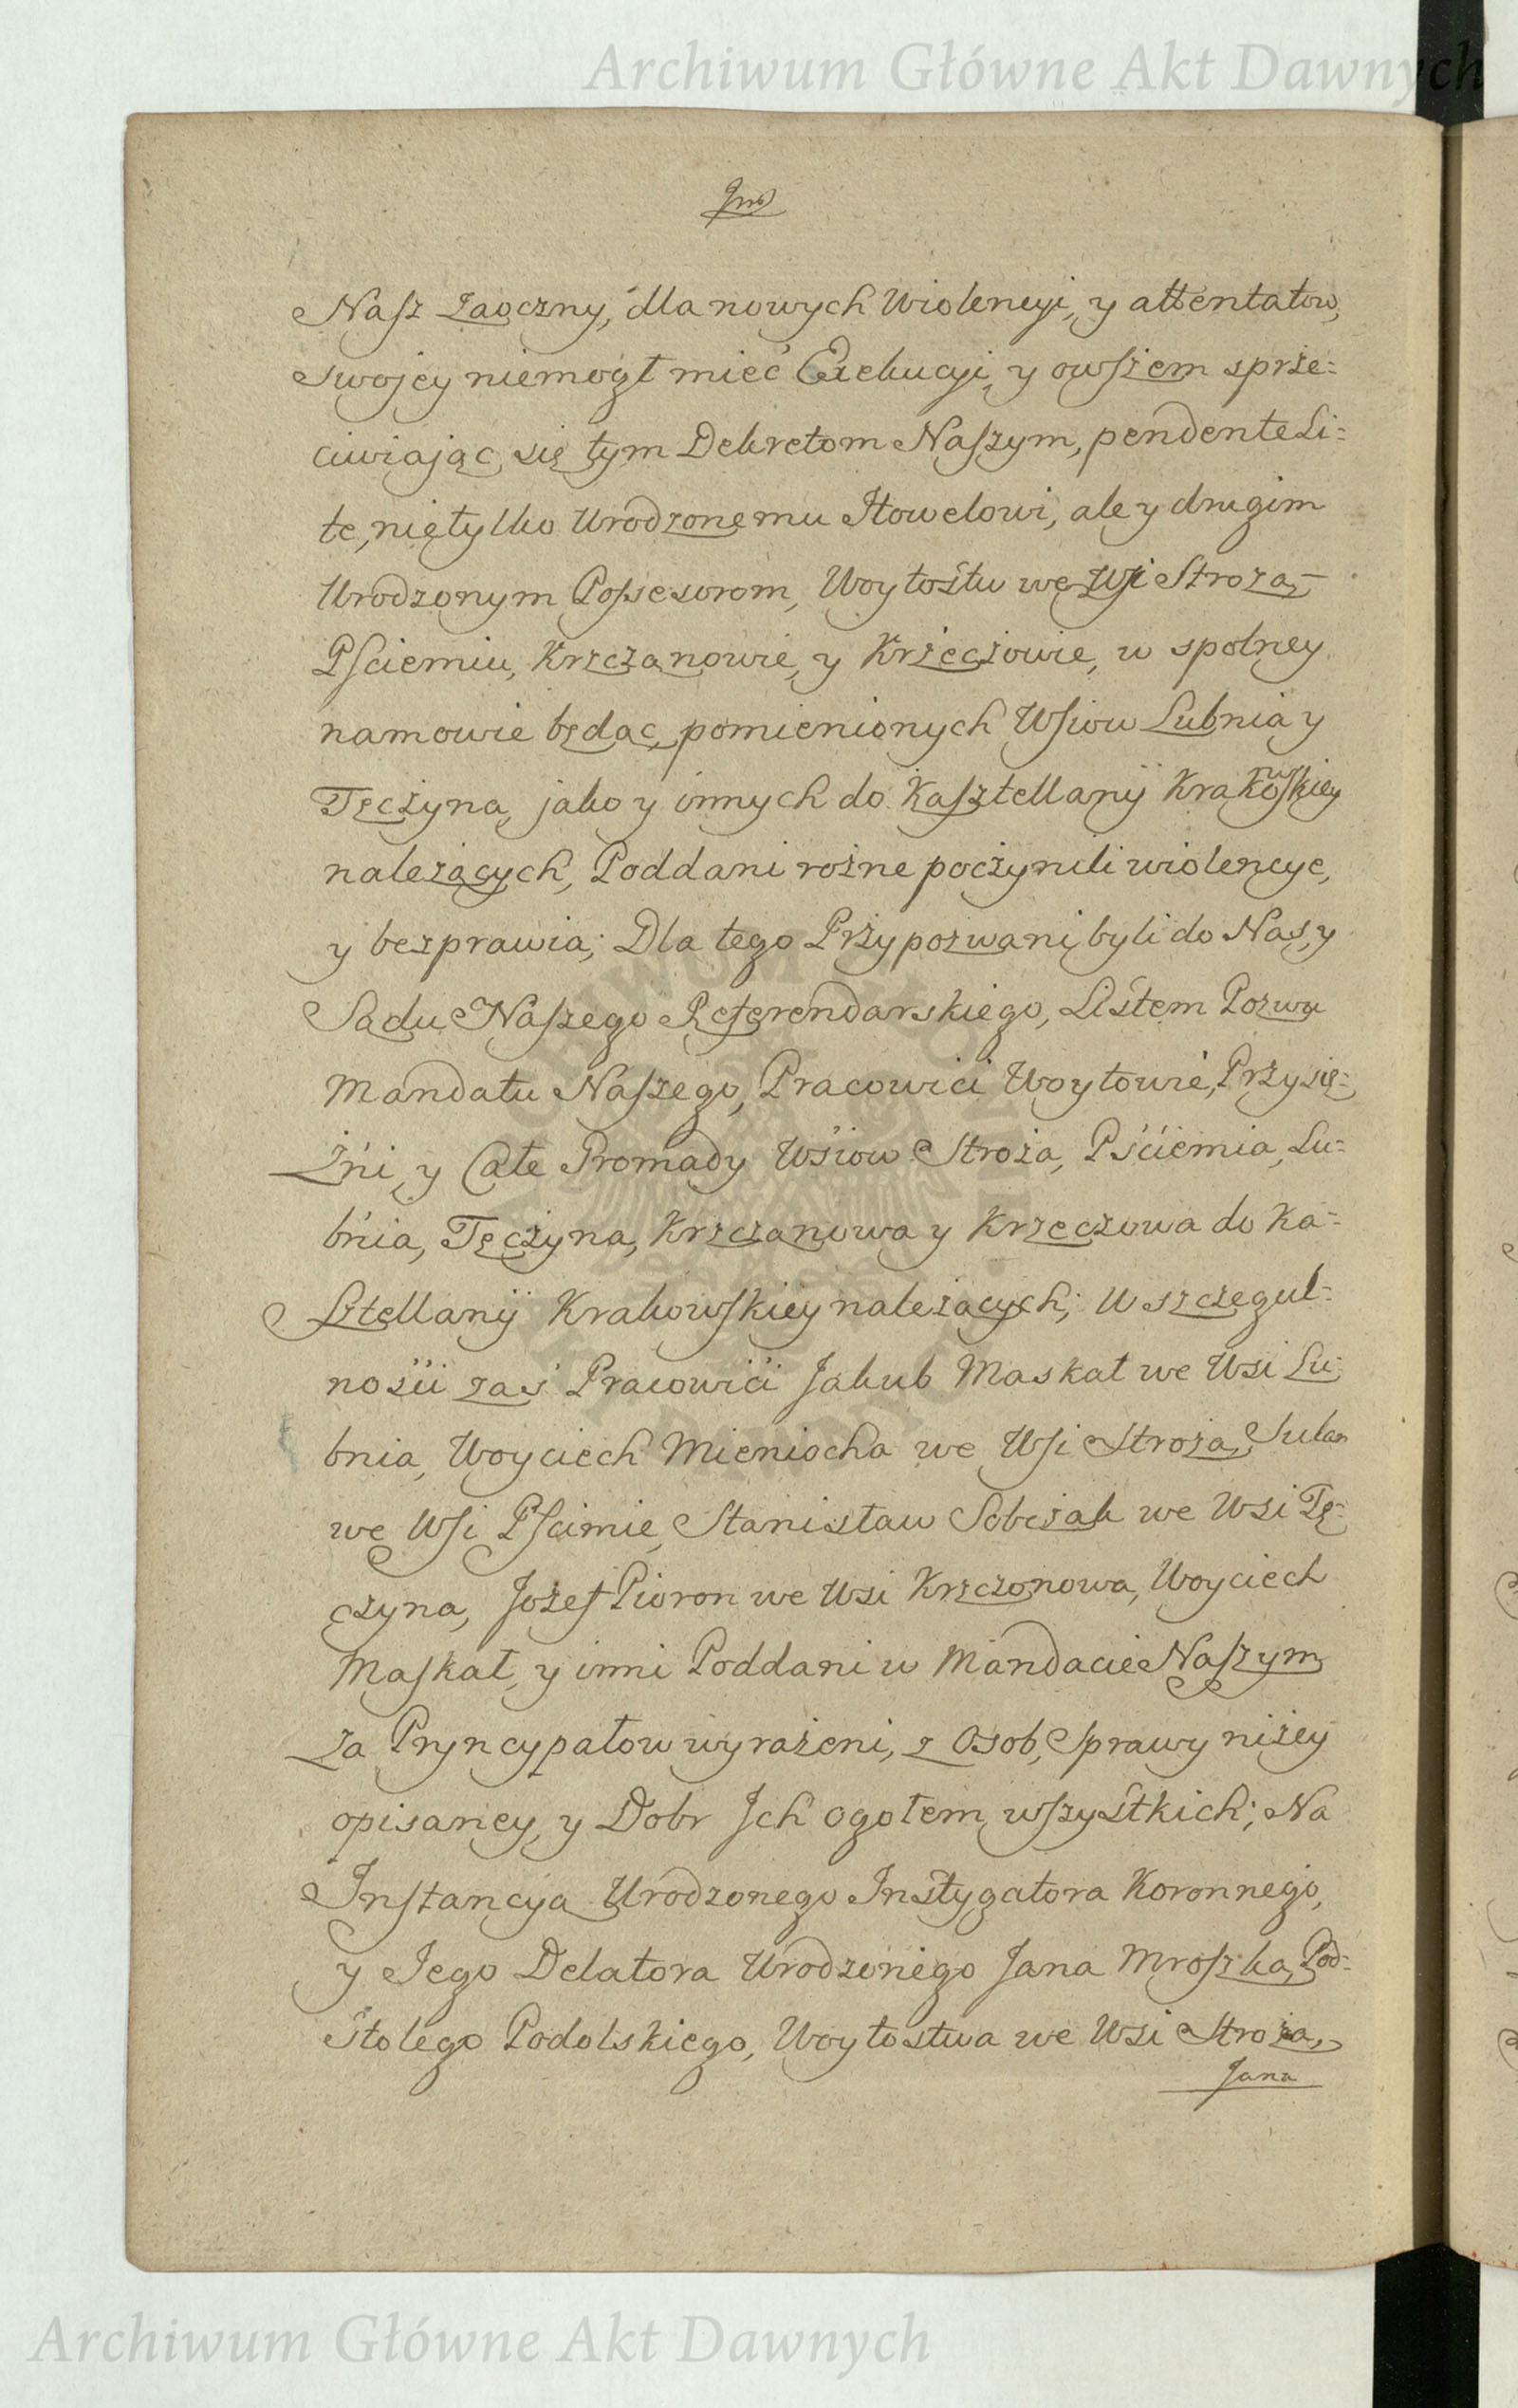 Archiwum Główne Akt Dawnych
Nasz Zaoczny, dla nowych Wiolencyi, y attentatow,
swojey niemogł mieć Exekucyi, y owszem sprze=
ciwiając się tym Dekretom Naszym, pendente Li=
te, nietylko Urodzonemu Howelowi, ale y drugim
Urodzonym Possesorom, Woytostw we Wsi Stroza,
Pściemiu, Krzczanowie, y Krzeczowie, w spolney
namowie będąc, pomienionych Wsiow Lubnia y
Tęczyna, jako y innych do Kasztellanÿ Krakowskiey
należących, Poddani rożne poczynili wiolencye,
y bezprawia; Dla tego Przypozwani byli do Nas, y
Sadu Naszego Referendarskiego, Listem Pozwu
Mandatu Naszego, Pracowici Woytowie, Przysię=
żni, y Całe Gromady Wsiow Stroża, Pściemia, Lu=
bnia, Tęczyna, Krzczanowa y Krzeczowa do Ka=
sztellanÿ Krakowskiey należących; W szczegul=
ności zaś Pracowici Jakub Maskał we Wsi Lu=
bnia, Woyciech Mieniocha we Wsi Stroża,
we Wsi Pścimie, Stanisław Sobczak we Wsi Tę=
czyna, Jozef Pioron we Wsi Krzczonowa, Woyciech
Maskał, y inni Poddani w Mandacie Naszym
za Pryncypałow wyrażeni, z Osob, Sprawy niżey
opisaney, y Dobr Ich ogołem wszystkich; Na
Instancya Urodzonego Instygatora Koronnego,
y Jego Delatora Urodzonego Jana Mroszka, Pod=
stolego Podolskiego, Woytostwa we Wsi Stroża,
Jana
Archiwum Główne Akt Dawnych